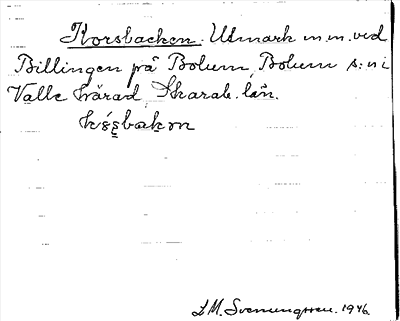 Korsbacken. Utmark m.m. ved
Billingen på Bolum, Bolum s:n i
Valle härad, Skarab. län.
S.M. Svenungsson. 1946